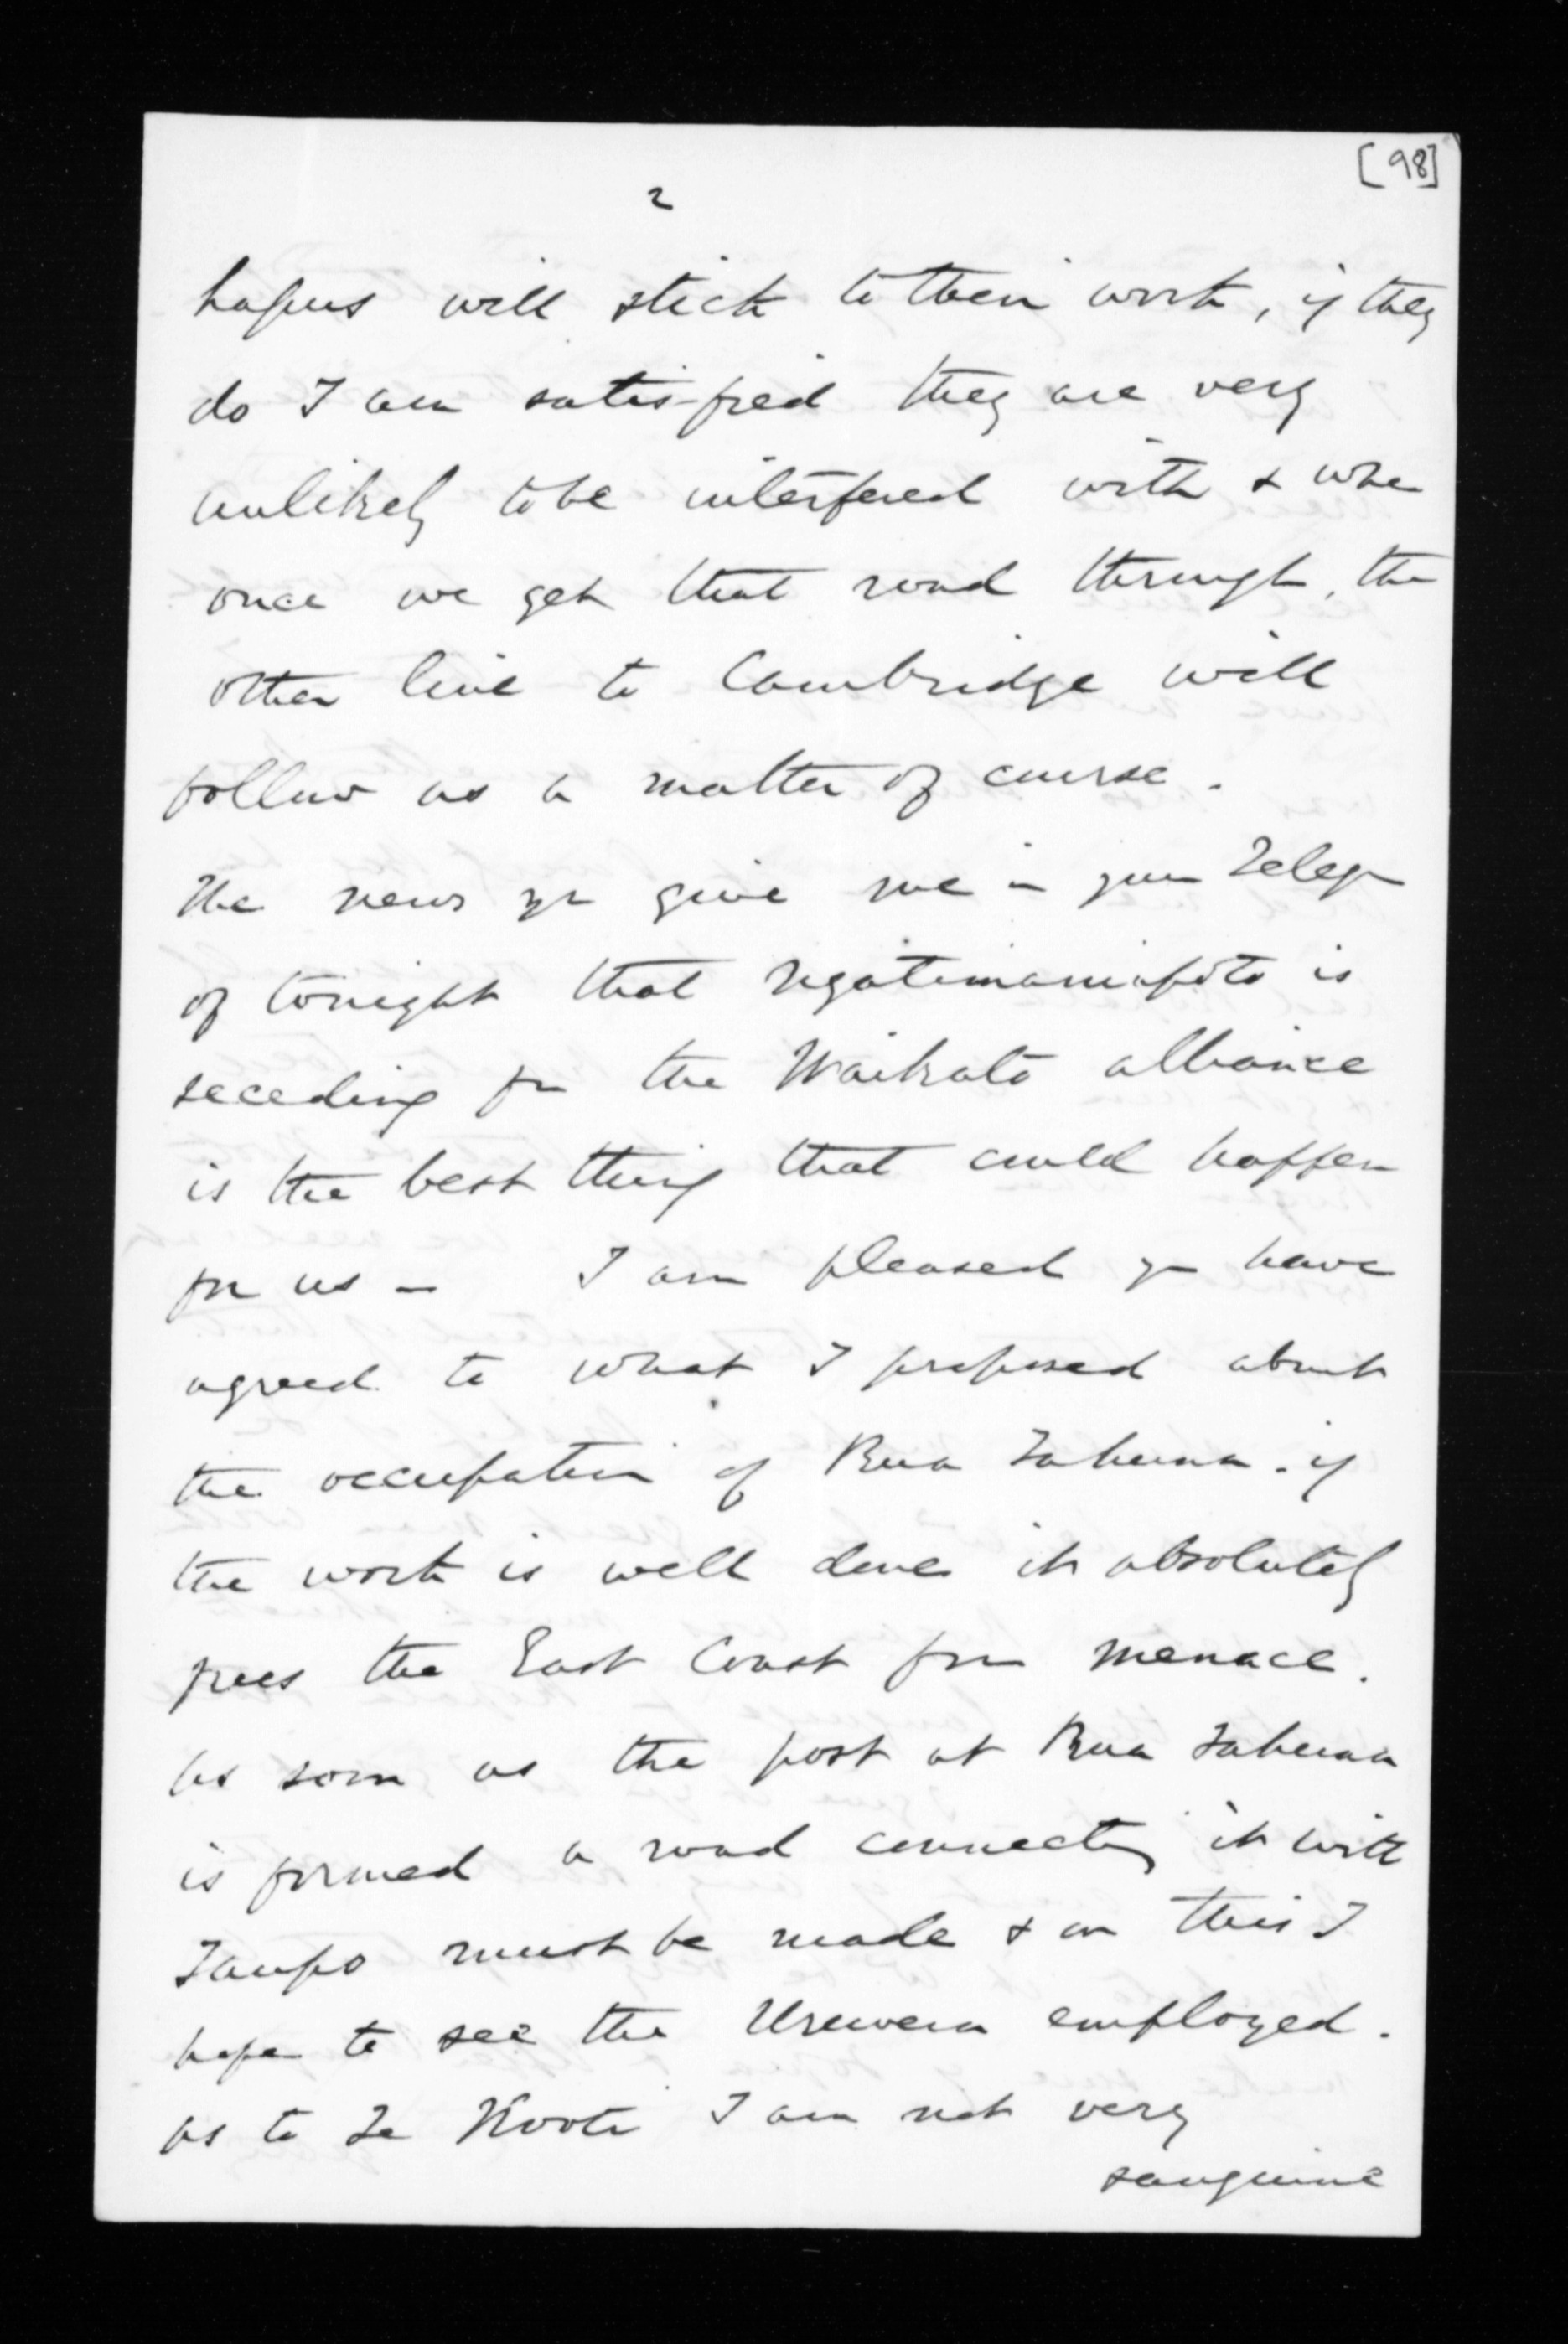 [98]
2
hapus will stick to their work, if they
do I am satisfied they are very
unlikely to be interfered with & when
once we get that road through, the
other line to Cambridge will
follow as a matter of course.
The news yr give me in your Telegm
of tonight that Ngatimaniapoto is
seceding fm the Waikato alliance
is the best thing that could happen
for us — I am pleased yu have
agreed to what I proposed about
the occupation of Rua Tahuna. if
the work is well done it absolutely
frees the East Coast from menace.
As soon as the post at Rua Tahuna
is formed a road connecting it with
Taupo must be made & on this I
hope to see the Urewera employed.
As to Te Kooti I am not very
sanguine